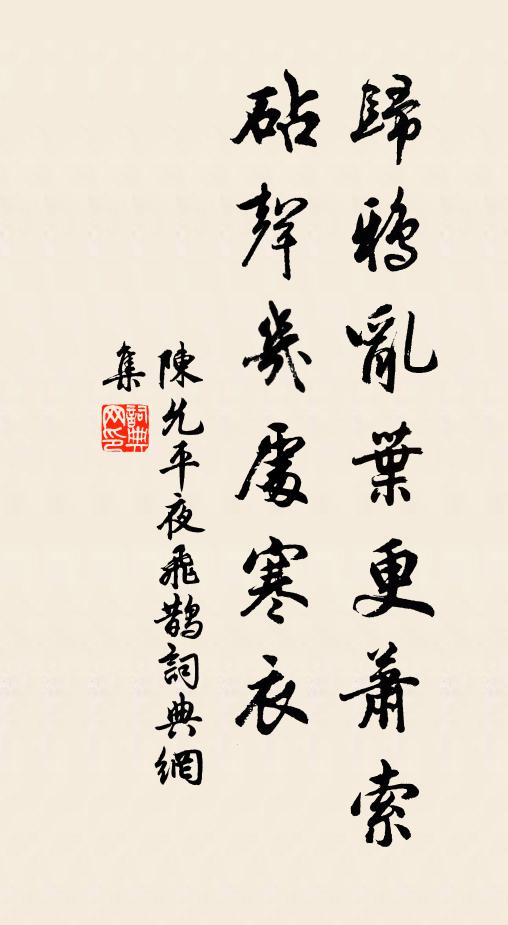 歸鴉亂葉更蕭索
砧聲幾處寒衣
陳允平夜飛鵲詞典網
集
詞典網印